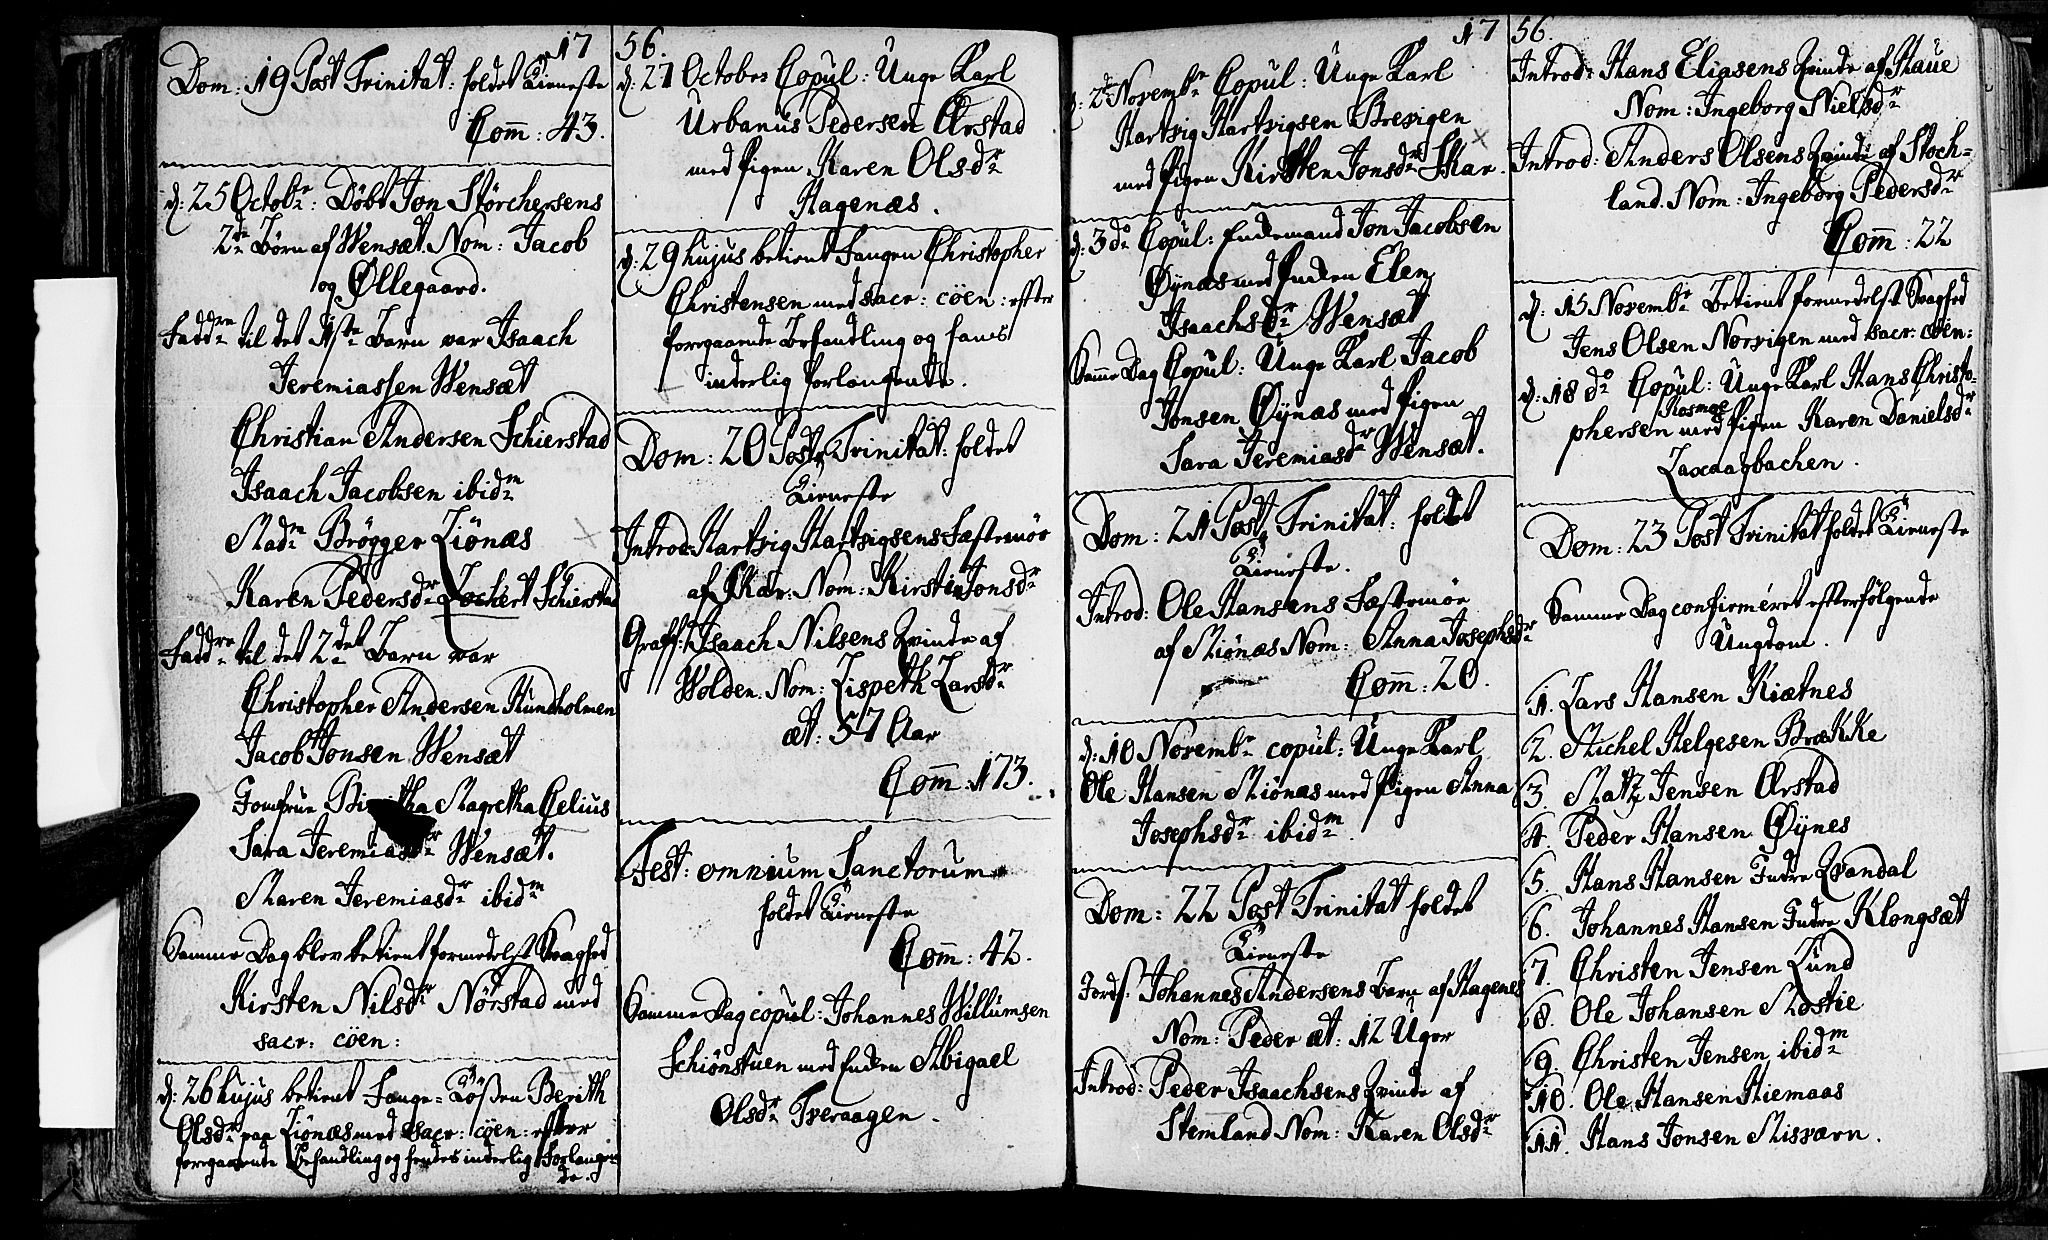 17
Dom: 19 Post Trinitat: holdet Tieneste
Com̅: 43.
d: 25 Octobr: Döbt Jon Störchersens
2de Börn af Wensæt. Nom: Jacob
og Øllegaard.
Faddre til det 1ste Barn var Isaach
Jeremiassen Wensæt
Christian Andersen Schierstad
Isaach Jacobsen ibidm
Madm Brögger Ziönæs
Karen Pedersdr Zochert Schierstad
Faddre til det 2det Barn var
Christopher Andersen Hundholmen
Jacob Jonsen Wensæt
Jomfrue Magretha Celius
Sara Jeremiasdr Wensæt.
Maren Jeremiasdr ibidm
Samme Dag blev betient formedelst Svaghed
Kirsten Nilsdr Nörstad med
sacr: cöen:
d: 26 hujus betient Fange Berith
Olsdr paa Ziönæs med sacr: cöen: efter
foregaaende Behandling og hendes inderlig Forlangen-
de.
56.
d: 27 October Copul: Unge Karl
Urbanus Pedersen Ørstad
med Pigen Karen Olsdr
Hagenæs.
d: 29 hujus betient Fangen Christopher
Christensen med sacr: cöen: efter
foregaaende Behandling og hans
inderlig forlangende.
Dom: 20 Post Trinitat: holdet
Tieneste
Introd: Hartvig Hartvigsens Festemöe
af Skar. Nom: Kirsten Jonsdr
Graff: Isaach Nilsens Qvinde af
Wolden. Nom: Lispeth Larsdr
æt: 57 Aar
Com̅: 173.
Fest: omnium Sanctorum
holdet Tieneste
Com̅: 42.
Samme Dag copul: Johannes Willumsen
Schiönstuen med Enken Abigael
Olsdr Tveraagen.
17
d: 2 Novembr Copul: Unge Karl
Hartvig Hartvigsen Brevigen
med Pigen Kirsten Jonsdr Skar.
d: 3 do Copul: Enkemand Jon Jacobsen
Öynæs med Enken Elen
Isaachsdr Wensæt
Samme Dag Copul: Unge Karl Jacob
Jonsen Öynæs med Pigen
Sara Jeremiasdr Wensæt.
Dom: 21 Post Trinitat: holdet
Tieneste.
Introd: Ole Hansens Festemöe
af Miönæs Nom: Anna Josephsdr
Com̅: 20.
d: 10 Novembr copul: Unge Karl
Ole Hansen Miönæs med Pigen Anna
Josephsdr ibidm
Dom: 22 Post Trinitat holdet
Tieneste
Jordf: Johannes Andersens Barn af Hagenes
Nom: Peder æt: 12 Uger
Introd: Peder Isaachsens Qvinde af
Stemland Nom: Karen Olsdr
56.
Introd: Hans Eliasens Qvinde af Haue
Nom: Ingeborg Nielsdr
Introd: Anders Olsens Qvinde af Stoch-
land. Nom: Ingeborg Pedersdr
Com̅: 22
d: 15 Novembr Betient formedelst Svaghed
Jens Olsen Norvigen med sacr: cöen:
d: 18 do Copul: Unge Karl Hans Christo-
Kosmoe
phersen med Pigen Karen Danielsdr
Laxaagbachen.
Dom: 23 Post Trinitat holdet Tieneste
Samme Dag confirmeret efterfölgende
Ungdom.
1. Lars Hansen Kiætnes
2. Michel Helgesen Brække
3. Matz Jensen Ørstad
4. Peder Hansen Öynes
5. Hans Hansen Indre Qvandal
6. Johannes Hansen Indre Klongsæt
7. Christen Jensen Lund
8. Ole Johansen Mostie
9. Christen Jensen ibidm
10. Ole Hansen Hiemaas
11. Hans Jonsen Misværn.